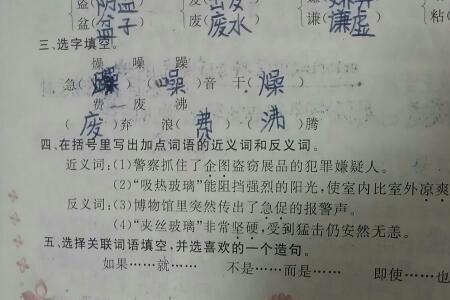 盆(盆子 废(废水 谦(谦虚 粘(
三、选字填空。
燥 噪 躁
急(躁) (噪)音 干(燥)
费 废 沸
(废)弃 浪(费) (沸)腾
四、在括号里写出加点词语的近义词和反义词。
近义词:(1)警察抓住了企图盗窃展品的犯罪嫌疑人。
(2)“吸热玻璃”能阻挡强烈的阳光,使室内比室外凉爽
反义词:(3)博物馆里突然传出了急促的报警声。
(4)“夹丝玻璃”非常坚硬,受到猛击仍安然无恙。
五、选择关联词语填空,并选喜欢的一个造句。
如果……就…… 不是……而是…… 即使……也